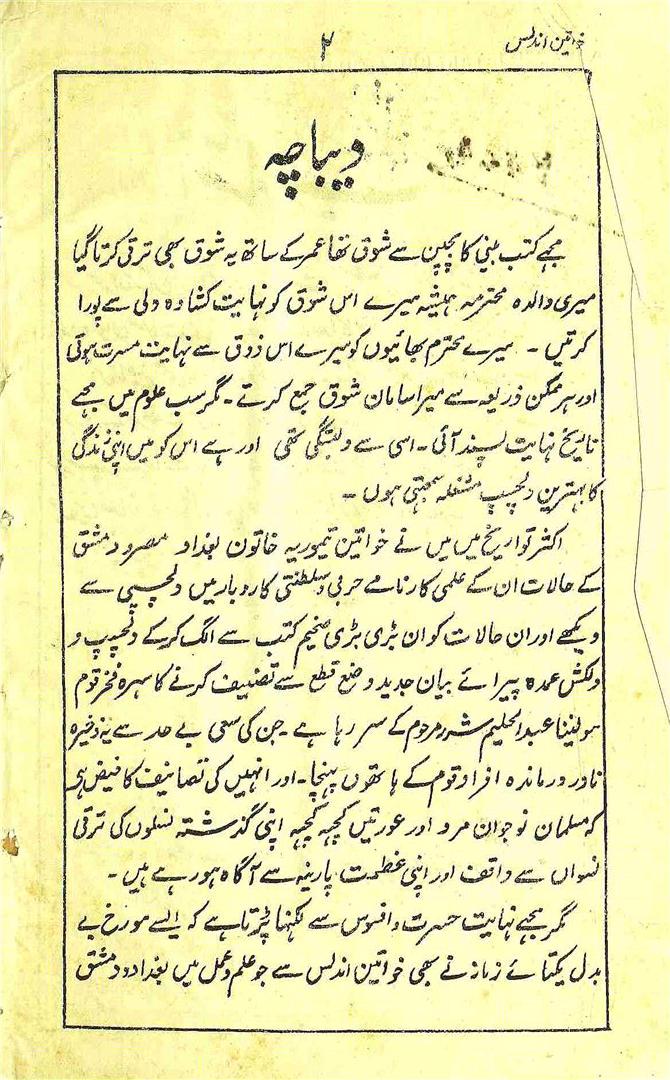 خواتین اندلس
۲
دیباچہ
مجہے کتب بینی کا بچپن سے شوق تھا عمر کے ساتھ یہ شوق بھی ترقی کرتا گیا
میری والدہ محترمہ ہمیشہ میرے اس شوق کو نہایت کشادہ دلی سے پورا
کرتیں ۔ میرے محترم بھائیوں کو میرے اس ذوق سے نہایت مسرت ہوتی
اور ہر ممکن ذریعہ سے میرا سامان شوق جمع کرتے ۔ مگر سب علوم میں مجہے
تاریخ نہایت پسند آئی ۔ اسی سے دلبستگی تھی اور ہے اس کو میں اپنی زندگی
کا بہترین دلچسپ مشغلہ سمجہتی ہوں ۔
اکثر تواریخ میں میں نے خواتین تیموریہ خاتون بغداد مصر و دمشق
کے حالات ان کے علمی کارنامے حربی و سلطنتی کاروبار میں دلچسپی سے
دیکھے اور ان حالات کو ان بڑی بڑی ضخیم کتب سے الگ کر کے دلچسپ و
دلکش عمدہ پیرائے بیان جدید وضع قطع سے تصنیف کرنے کا سہرہ فخر قوم
مولینا عبدالحلیم شرر مرحوم کے سر رہا ہے ۔ جن کی سعی بے حد سے یہ ذخیرہ
نادر و درماندہ افراد قوم کے ہاتھوں پہنچا ۔ اور انہیں کی تصانیف کا فیض ہی
کہ مسلمان نوجوان مرد اور عورتیں کچہہ کچہہ اپنی گذشتہ نسلوں کی ترقی
نسواں سے واقف اور اپنی عظمت پارینہ سے آگاہ ہو رہے ہیں ۔
مگر مجہے نہایت حسرت و افسوس سے لکہنا پڑتا ہے کہ ایسے مورخ بے
بدل یکتائے زمانہ نے بھی خواتین اندلس سے جو علم و عمل میں بغداد و دمشق